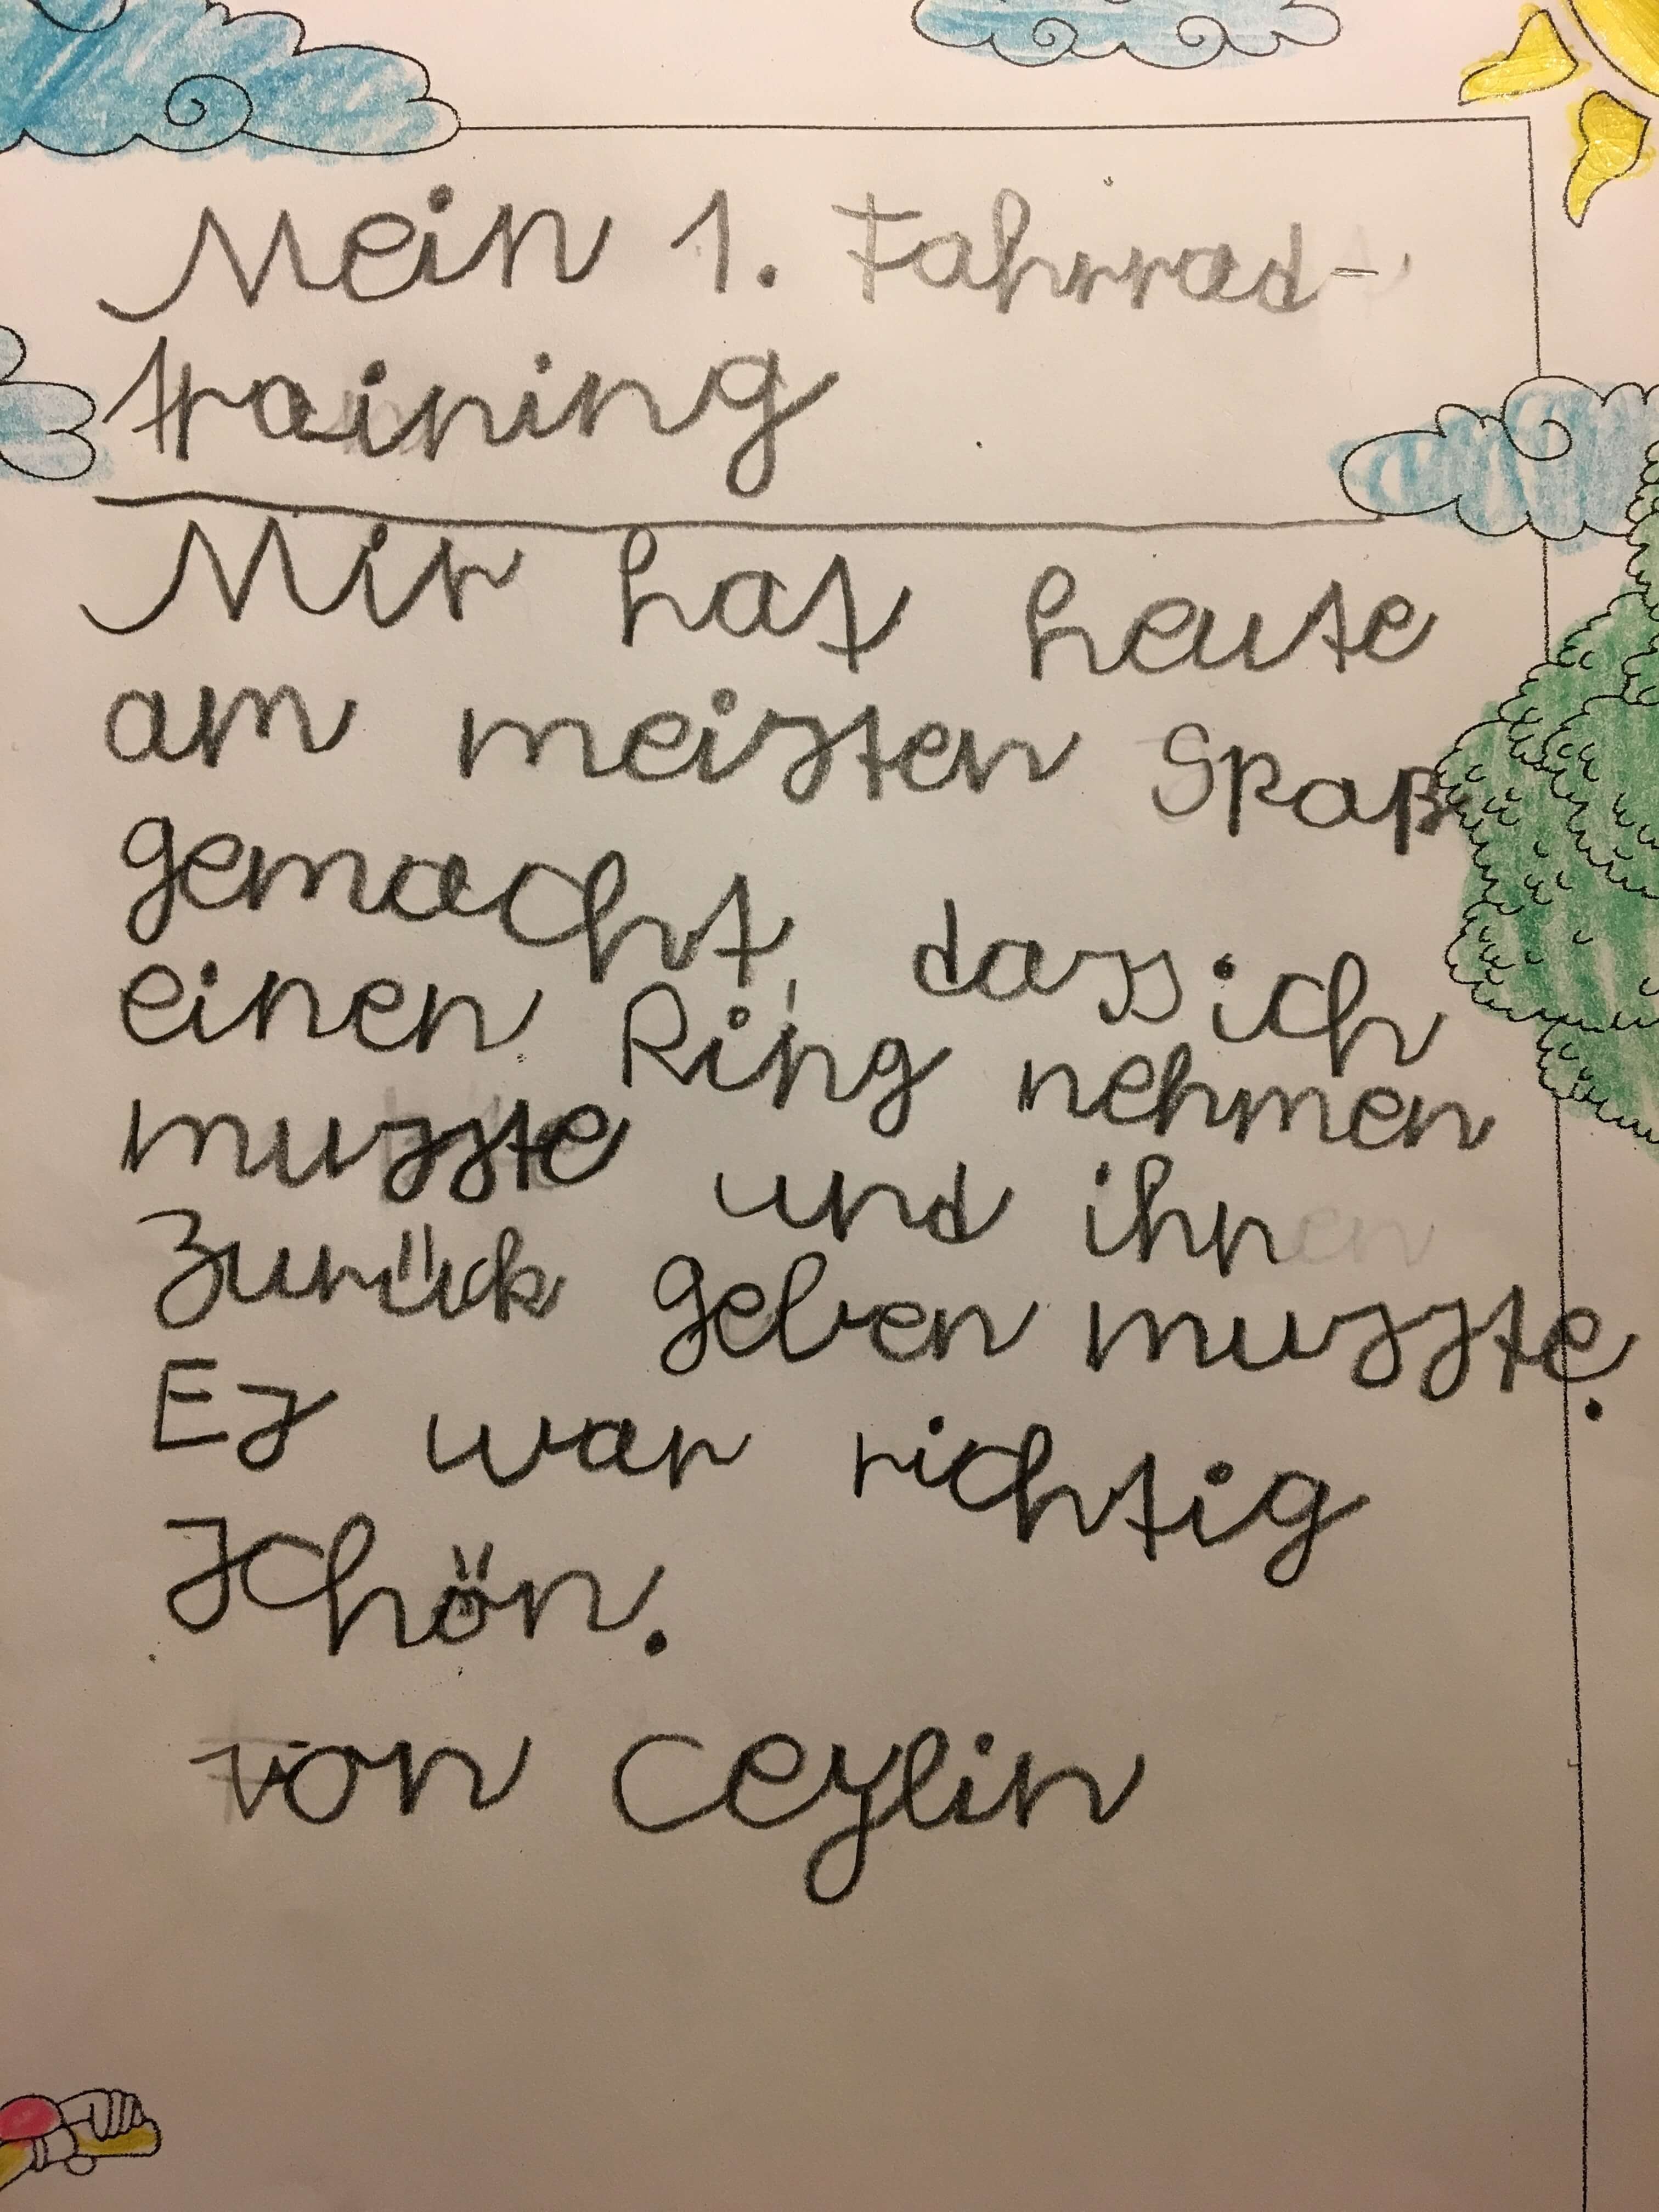 Mein 1. Fahrrad-
training
Mir hat heute
am meisten Spaß
gemacht, dass ich
einen Ring nehmen
musste und ihn
Zurück geben musste.
Es war richtig
schön.
von Ceylin